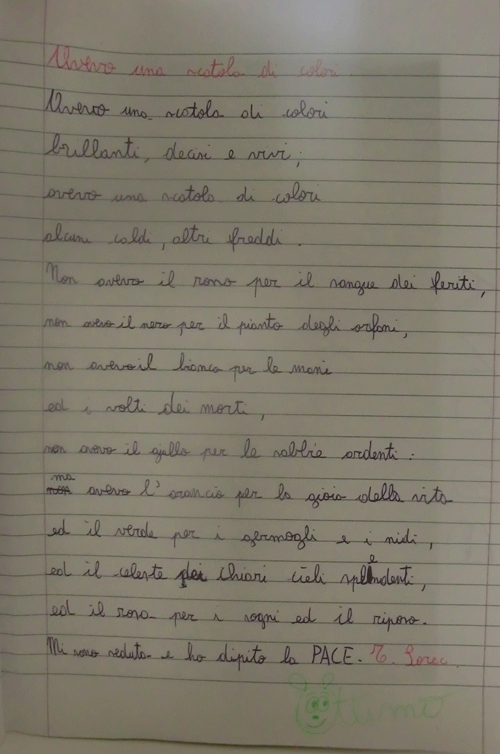 Avevo una scatola di colori
Avevo una scatola di colori
brillanti, decisi e vivi;
avevo una scatola di colori
alcuni caldi, altri freddi.
Non avevo il rosso per il sangue dei feriti,
non avevo il nero per il pianto degli orfani,
non avevo il bianco per le mani
ed i volti dei morti,
non avevo il giallo per le sabbie ardenti:
ma avevo l'arancio per la gioia della vita
ed il verde per i germogli e i nidi,
ed il celeste dei chiari cieli splendenti,
ed il rosa per i sogni ed il riposo.
Mi sono seduta e ho dipito la PACE. T. Sorec.
Ottimo